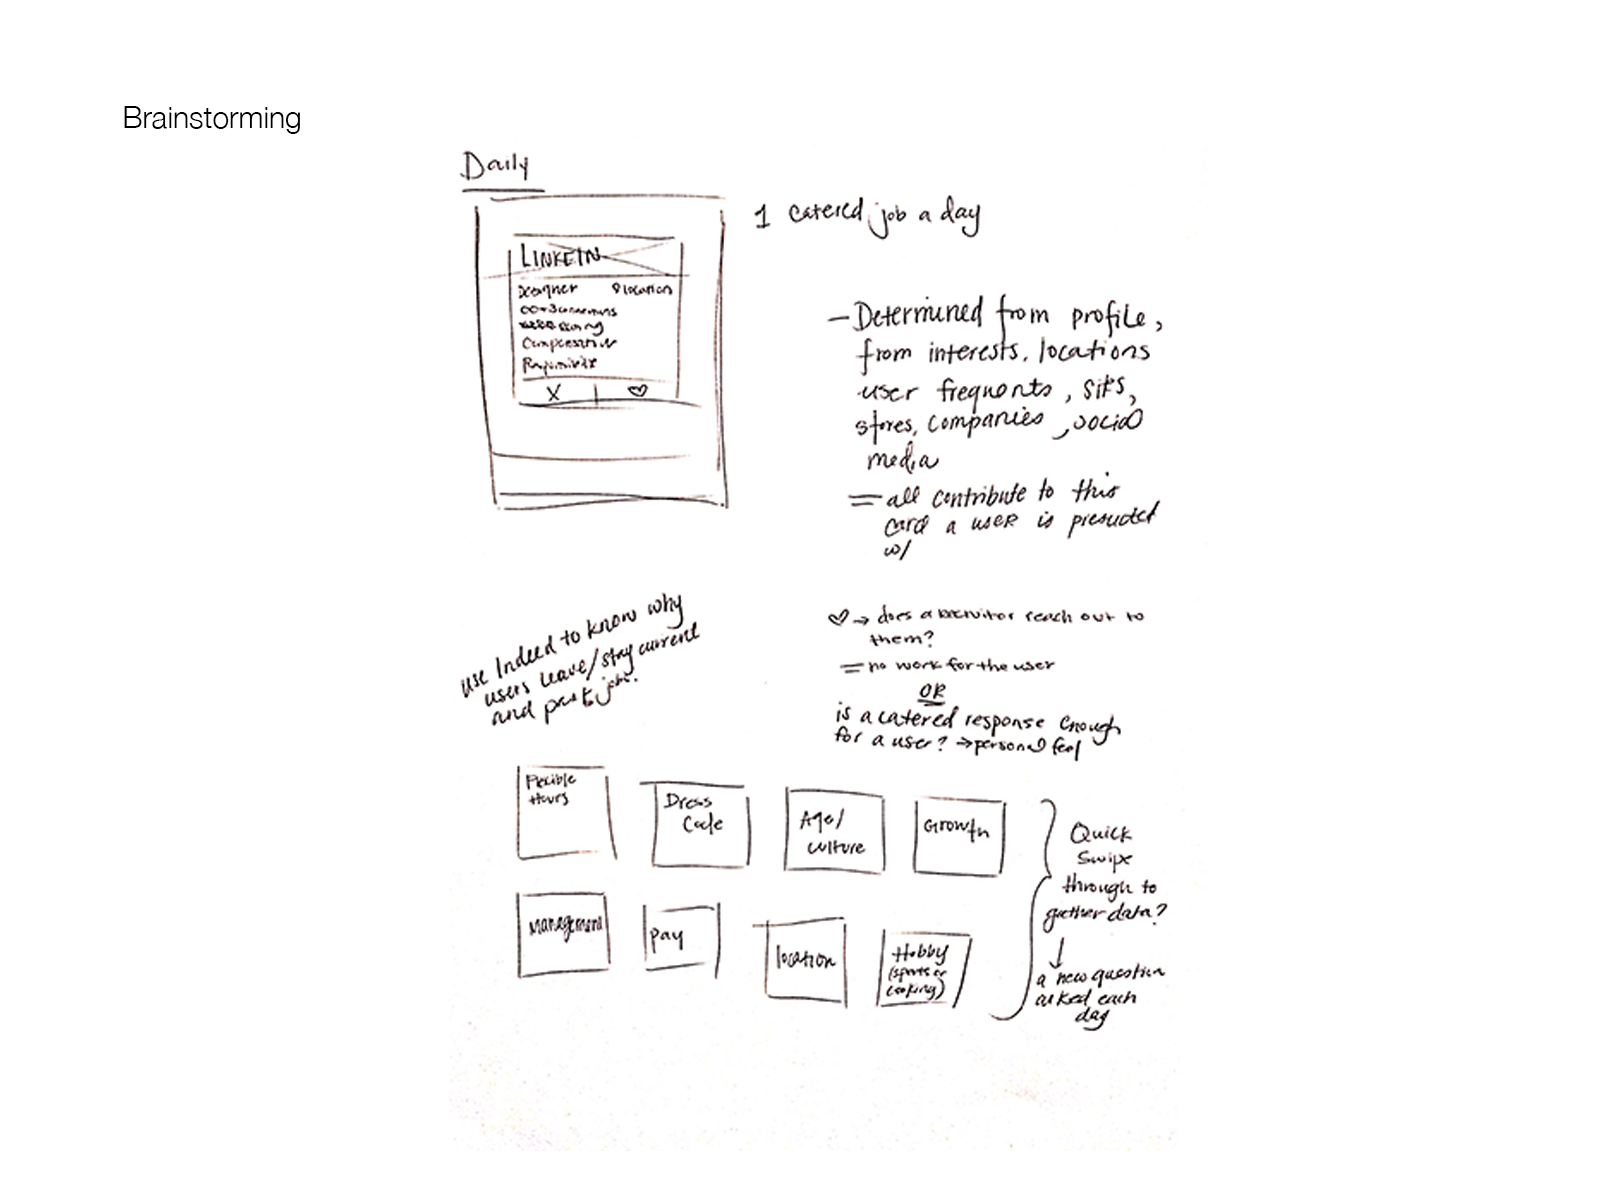 Brainstorming
Daily
1 catered job a day
LINKEIN
Designer location
X
– Determined from profile,
from interests, locations
user frequents, sits,
stores, companies, social
media
= all contribute to this
card a user is presented
w/
use Indeed to know why
users leave/stay current
and past jobs.
♡ → does a recruitor reach out to
them?
= no work for the user
OR
is a catered response enough
for a user? → personal feel
Flexible
Hours
Dress
Code
Age/
culture
Growth
Management
pay
location
Hobby
(sports or
cooking)
Quick
swipe
through to
gather data?
↓
a new question
asked each
day